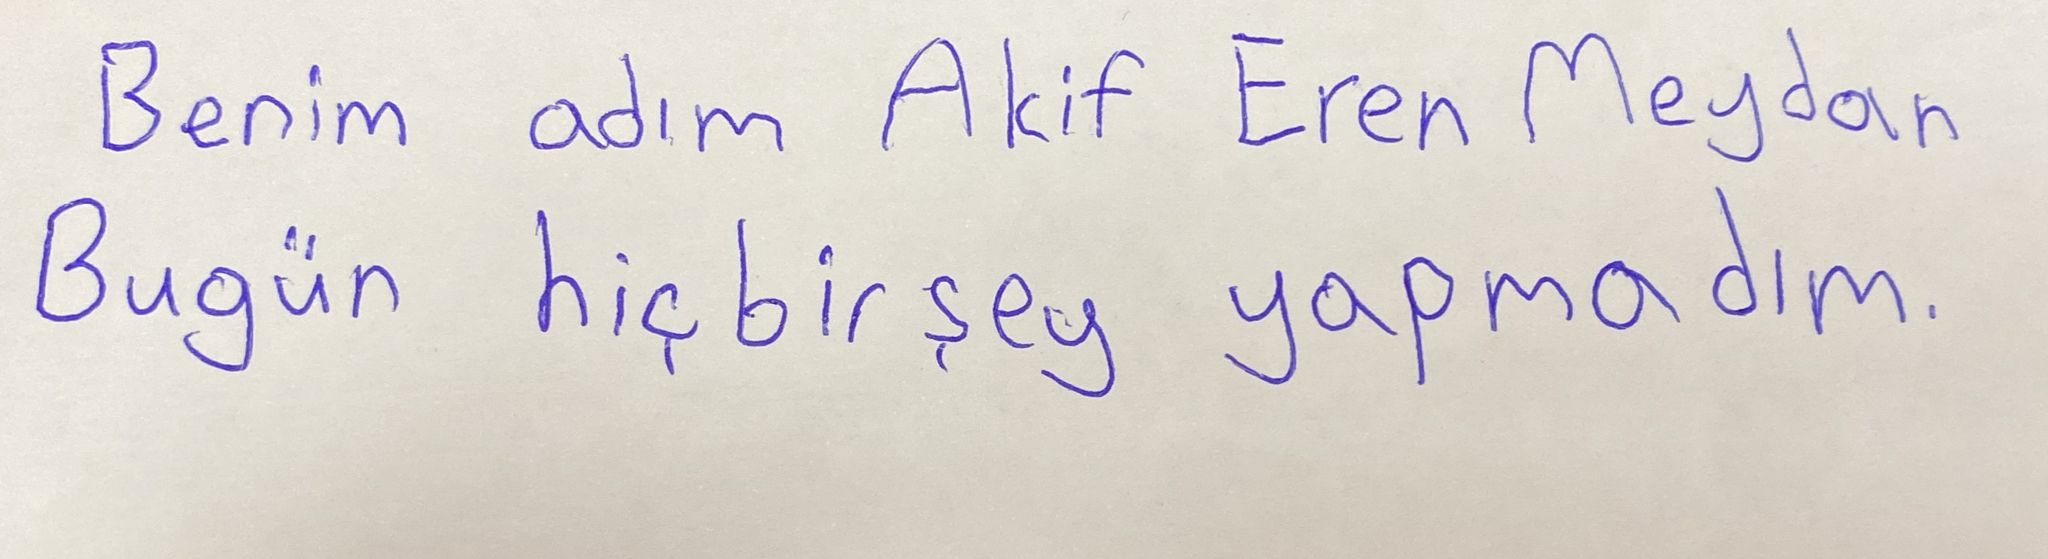 Benim adım Akif Eren Meydan
Bugün hiçbirşey yapmadım.